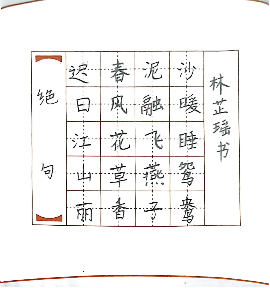 绝句
迟日江山丽
春风花草香
泥融飞燕子
沙暖睡鸳鸯
林芷瑶书